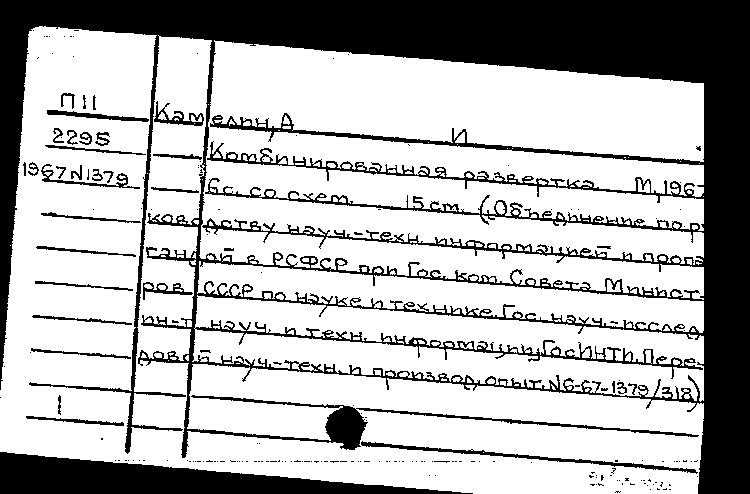 П11
Камелин, А И
2295
Комбинированная развертка М, 1967
1967 N1379
6с. со схем. 15 см. (Объединение по ру
ководству науч.-техн. информацией и пропа
гандой в РСФСР при Гос. ком. Совета Минист-
ров СССР по науке и технике. Гос. науч.-исслед.
ин-т науч. и техн. информации, ГосИНТИ. Пере-
довой науч.-техн. и производ. опыт. N6-67-1379/318)
1